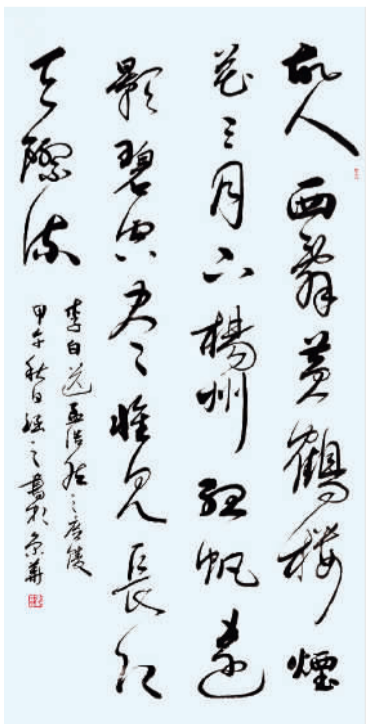 故人西辭黄鶴樓煙
花三月下楊州孤帆遠
影碧空尽惟見長江
天際流
李白送孟浩然之廣陵
甲午秋日之書於京華